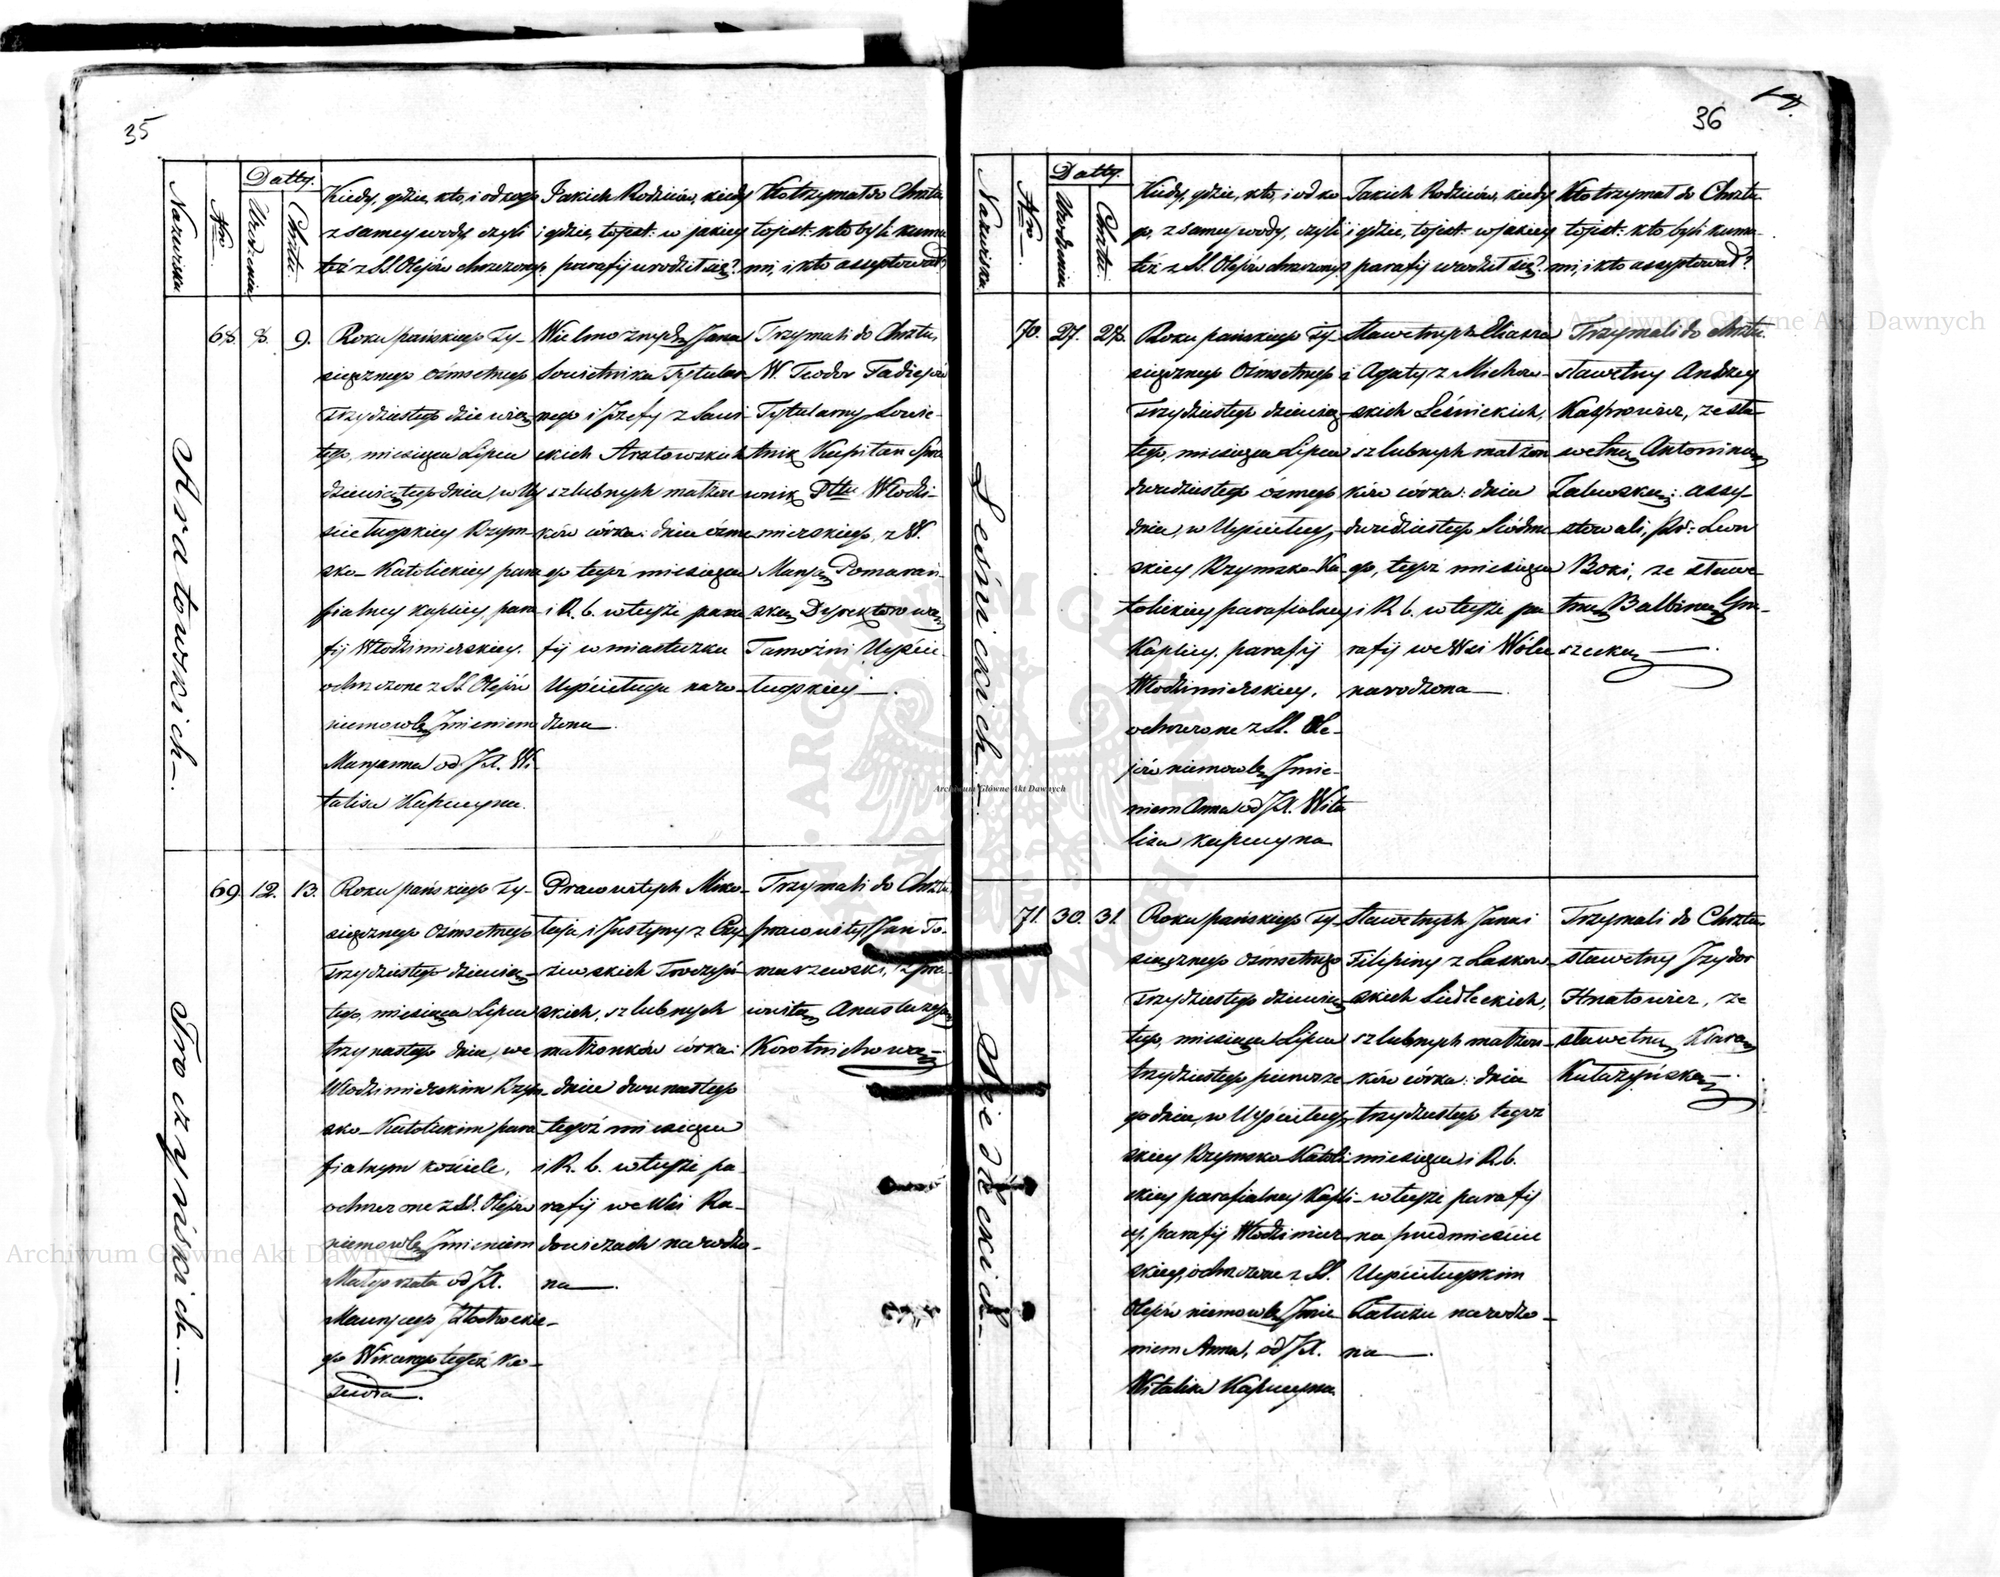 35
Nazwiska
Nro
Datty.
Urodzenia
Chrztu
Kiedy, gdzie, kto, i od czego
z samey wody, czyli
też z SS. Olejów chrzczony?
Jakich Rodziców, kiedy
i gdzie, to jest: w jakiey
parafij urodził się?
Kto trzymał do Chrztu,
to jest: kto byli kuma
mi, i kto assystował?
Aratowskich.
68. 8. 9.
Roku pańskiego Ty-
siącznego Ośmsetnego
Trzydziestego dziewią
tego, miesiąca Lipca
dziewiątego dnia, w Uy
ściługskiey Rzym-
sko-Katolickiey para
fialney kaplicy, para
fij Włodzimierskiey.
ochrzczone z SS. Olejów
niemowle Imieniem
Maryanna od JX. Wi-
talisa Kapucyna.
Wielmożnych Jana
Sowietnika Tytular
nego i Józefy z Sawi-
ckich Aratowskich
szlubnych małżon-
ków córka: dnia ósme
go tegoż miesiąca
i R. b. w teyże para
fij w miasteczku
Uyściługu naro-
dzona.
Trzymali do Chrztu,
W. Teodor Fadiejew
Tytularny Sowie-
tnik Kapitan Spra
wnik Pttu Włodzi-
mierskiego, z W.
Maryą Pomarań-
ską Dyrektorową
Tamożni Uyści-
ługskiey.
Troczyńskich.
69. 12. 13.
Roku pańskiego Ty-
siącznego Ośmsetnego
Trzydziestego dziewią-
tego, miesiąca Lipca
trzynastego dnia, we
Włodzimierskim Rzym-
sko-Katolickim para
fialnym kościele,
ochrzczone z SS. Olejów
niemowle Imieniem
Małgorzata od JX.
Maurycego
go Wikarego tegoż Ko-
ścioła.
Pracowitych Miko-
łaja i Justyny z
Troczyń-
skich, szlubnych
małżonków córka:
dnia dwunastego
tegoż miesiąca
i R. b. w teyże pa-
rafij we Wsi
narodzo-
na.
Trzymali do Chrztu,
pracowity Jan To-
marzewski, z pra-
cowitą Anastazyą
Korotnichową.
36
Nazwiska
Nro
Datty.
Urodzenia
Chrztu
Kiedy, gdzie, kto, i od ko
go, z samey wody, czyli
też z SS. Olejów chrzczony?
Jakich Rodziców, kiedy
i gdzie, to jest: w jakiey
parafij urodził się?
Kto trzymał do Chrztu
to jest: kto byli kuma-
mi, i kto assystował?
Leśnickich.
70. 27. 28.
Roku pańskiego Ty-
siącznego Ośmsetnego
Trzydziestego dziewią-
tego, miesiąca Lipca
dwudziestego ósmego
dnia, w Uyściług-
skiey Rzymsko-Ka-
tolickiey parafialney
Kaplicy. parafij
Włodzimierskiey.
ochrzczone z SS. Ole-
jów niemowle Imie-
niem Anna od JX. Wita
lisa kapucyna
Sławetnych Eliasza
i Agaty z Michow-
skich Leśnickich,
szlubnych małżon
ków córka: dnia
dwudziestego siódme
go, tegoż miesiąca
i R. b. w teyże pa
rafij we Wsi Wólce
narodzona.
Trzymali do Chrztu.
sławetny Andrzey
Kasprowicz, ze sła-
wetną Antoniną
Zalewską: assy-
stowali, Leon
Boki, ze sławe-
tną Balbiną Gru-
szecką.
Siedleckich.
71. 30. 31.
Roku pańskiego Ty-
siącznego Ośmsetnego
Trzydziestego dziewią
tego, miesiąca Lipca
trzydziestego pierwsze
go dnia, w Uyściług
skiey Rzymsko Katoli
ckiey parafialney Kapli-
cy, parafij Włodzimier
skiey, ochrzczone z SS.
Olejów niemowle Imie
niem Anna, od JX.
Witalisa Kapucyna
Sławetnych Jana i
Filipiny z Laskow-
skich Siedleckich,
szlubnych małżon-
ków córka: dnia
trzydziestego tegoż
miesiąca i R. b.
w teyże parafij
na przedmieściu
Uyściługskim
Załużu narodzo-
na.
Trzymali do Chrztu
sławetny Izydor
Hnatowicz, ze
sławetną Klarą
Kułazyńską.
Archiwum Główne Akt Dawnych
Archiwum Główne Akt Dawnych
Archiwum Główne Akt Dawnych